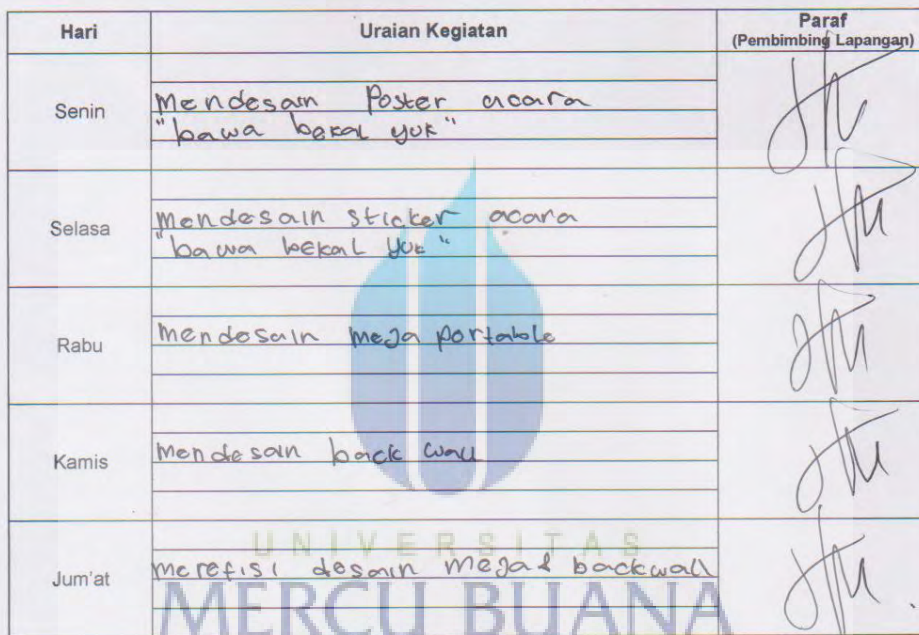 Hari Uraian Kegiatan Paraf
(Pembimbing Lapangan)
Senin
Mendesain Poster acara
"bawa bekal yuk"
Selasa
mendesain sticker acara
"bawa bekal yuk"
Rabu
mendesain meja portable
Kamis
mendesain back wall
UNIVERSITAS
Jum'at
merefisi desain meja & backwall
MERCU BUANA